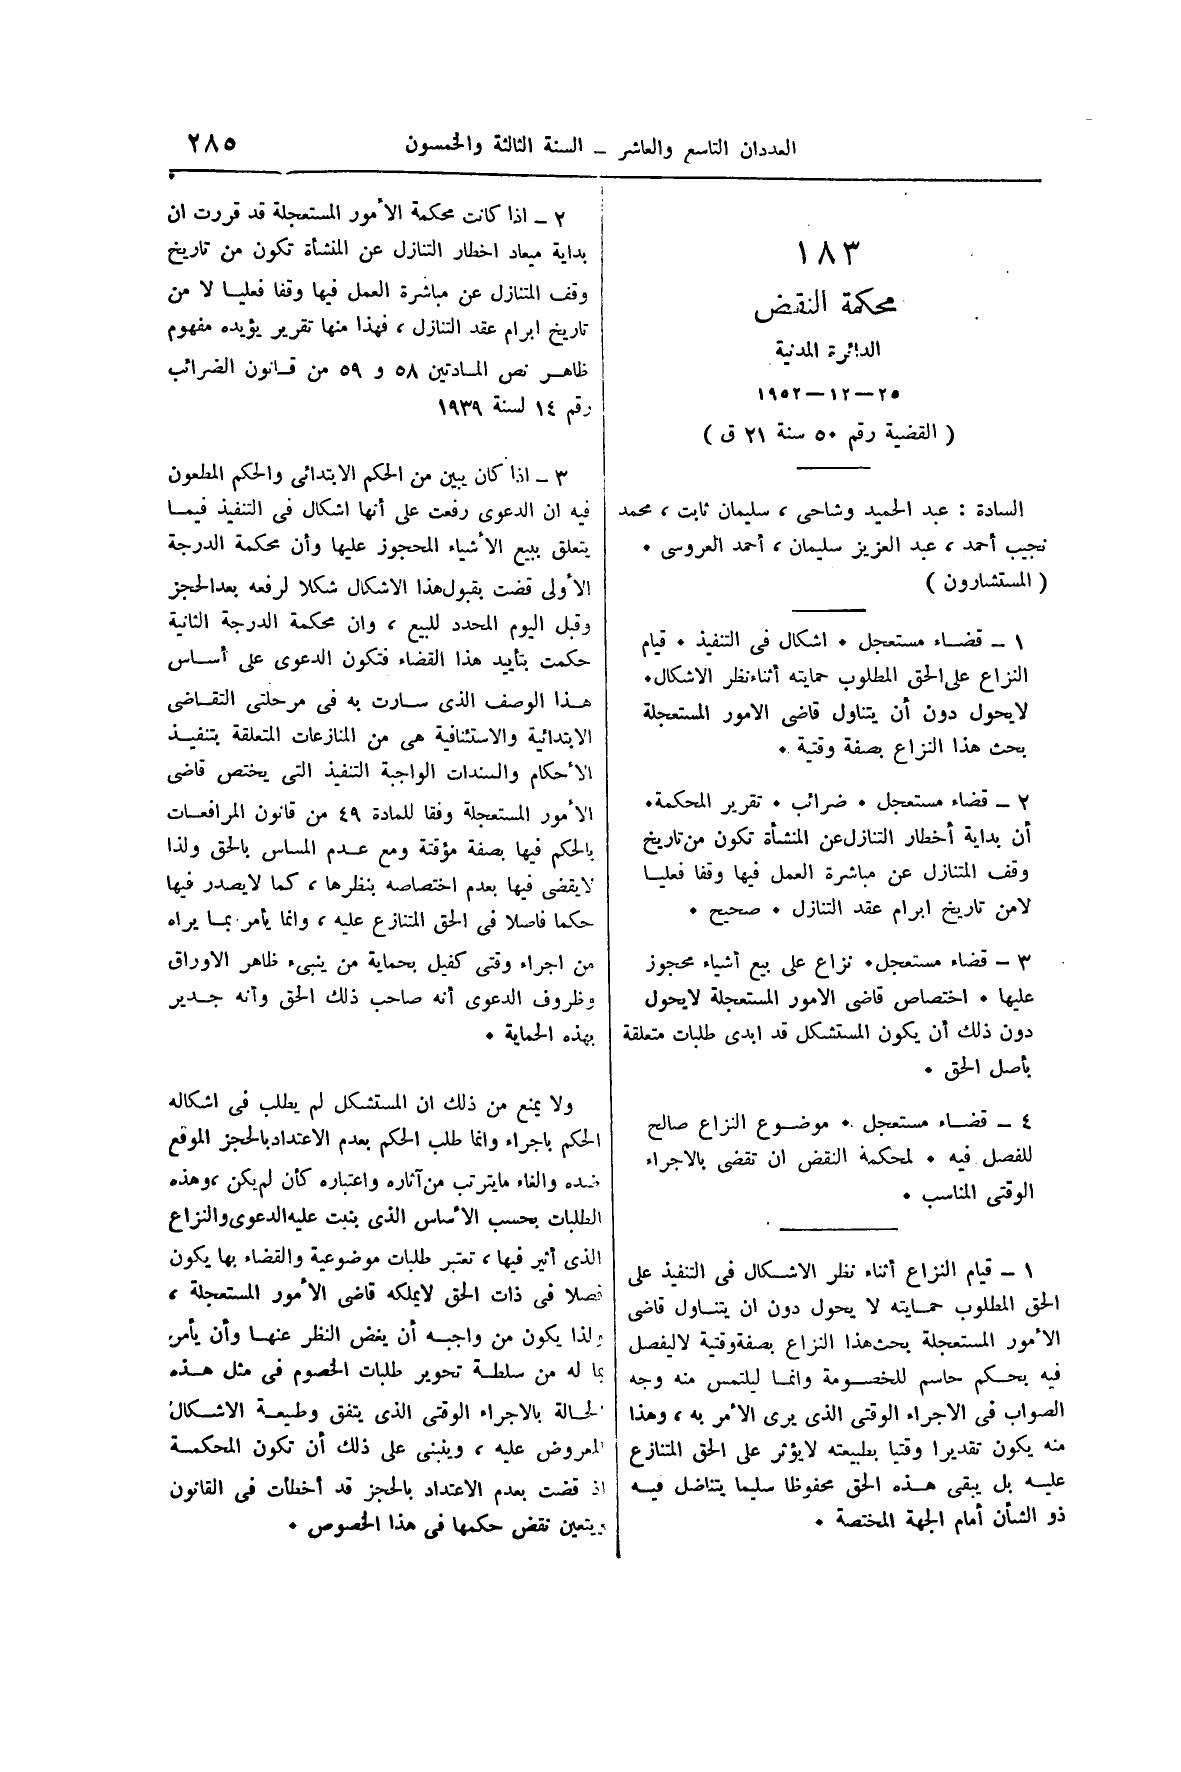 العددان التاسع والعاشر ــ السنة الثالثة والخمسون
٢٨٥
١٨٣
محكمة النقض
الدائرة المدنية
٢٥ــ١٢ــ١٩٥٢
( القضية رقم ٥٠ سنة ٢١ ق )
السادة : عبد الحميد وشاحى ، سليمان ثابت ، محمد
نجيب أحمد ، عبد العزيز سليمان ، أحمد العروسى .
( المستشارون )
١ ــ قضاء مستعجل . اشكال فى التنفيذ . قيام
النزاع على الحق المطلوب حمايته أثناء نظر الاشكال.
لايحول دون أن يتناول قاضى الامور المستعجلة
بحث هذا النزاع بصفة وقتية .
٢ ــ قضاء مستعجل . ضرائب . تقرير المحكمة.
أن بداية أخطار التنازل عن المنشأة تكون من تاريخ
وقف المتنازل عن مباشرة العمل فيها وقفا فعليا
لامن تاريخ ابرام عقد التنازل . صحيح .
٣ ــ قضاء مستعجل. نزاع على بيع أشياء محجوز
عليها . اختصاص قاضى الامور المستعجلة لايحول
دون ذلك أن يكون المستشكل قد ابدى طلبات متعلقة
بأصل الحق .
٤ ــ قضاء مستعجل . موضوع النزاع صالح
للفصل فيه . لمحكمة النقض ان تقضى بالاجراء
الوقتى المناسب .
١ ــ قيام النزاع أثناء نظر الاشكال فى التنفيذ على
الحق المطلوب حمايته لا يحول دون ان يتناول قاضى
الأمور المستعجلة بحث هذا النزاع بصفة وقتية لاليفصل
فيه بحكم حاسم للخصومة وانما ليلتمس منه وجه
الصواب فى الاجراء الوقتى الذى يرى الأمر به ، وهذا
منه يكون تقديرا وقتيا بطبيعته لايؤثر على الحق المتنازع
عليه بل يبقى هذه الحق محفوظا سليما يتناضل فيه
ذو الشأن أمام الجهة المختصة .
٢ ــ اذا كانت محكمة الأمور المستعجلة قد قررت ان
بداية ميعاد اخطار التنازل عن المنشأة تكون من تاريخ
وقف المتنازل عن مباشرة العمل فيها وقفا فعليا لا من
تاريخ ابرام عقد التنازل ، فهذا منها تقرير يؤيده مفهوم
ظاهر نص المادتين ٥٨ و ٥٩ من قانون الضرائب
رقم ١٤ لسنة ١٩٣٩
٣ ــ اذا كان يبين من الحكم الابتدائى والحكم المطعون
فيه ان الدعوى رفعت على أنها اشكال فى التنفيذ فيما
يتعلق ببيع الأشياء المحجوز عليها وأن محكمة الدرجة
الأولى قضت بقبول هذا الاشكال شكلا لرفعه بعد الحجز
وقبل اليوم المحدد للبيع ، وان محكمة الدرجة الثانية
حكمت بتأيد هذا القضاء فتكون الدعوى على أساس
هذا الوصف الذى سارت به فى مرحلتى التقاضى
الابتدائية والاستئنافية هى من المنازعات المتعلقة بتنفيذ
الأحكام والسندات الواجبة التنفيذ التى يختص قاضى
الأمور المستعجلة وفقا للمادة ٤٩ من قانون المرافعات
بالحكم فيها بصفة مؤقتة ومع عدم المساس بالحق ولذا
لايقضى فيها بعدم اختصاصه بنظرها ، كما لايصدر فيها
حكما فاصلا فى الحق المتنازع عليه ، وانما يأمر بما يراه
من اجراء وقتى كفيل بحماية من ينبىء ظاهر الاوراق
وظروف الدعوى أنه صاحب ذلك الحق وأنه جدير
بهذه الحماية .
ولا يمنع من ذلك ان المستشكل لم يطلب فى اشكاله
الحكم باجراء وانما طلب الحكم بعدم الاعتداد بالحجز الموقع
ضده والغاء مايترتب من آثاره واعتباره كأن لم يكن ، وهذه
الطلبات بحسب الأساس الذى بنيت عليه الدعوى والنزاع
الذى أثير فيها ، تعتبر طلبات موضوعية والقضاء بها يكون
فصلا فى ذات الحق لايملكه قاضى الأمور المستعجلة ،
ولذا يكون من واجبه أن يغض النظر عنها وأن يأمر
بما له من سلطة تحوير طلبات الخصوم فى مثل هذه
الحالة بالاجراء الوقتى الذى يتفق وطبيعة الاشكال
المعروض عليه ، وينبنى على ذلك أن تكون المحكمة
اذ قضت بعدم الاعتداد بالحجز قد أخطأت فى القانون
ويتعين نقض حكمها فى هذا الخصوص .